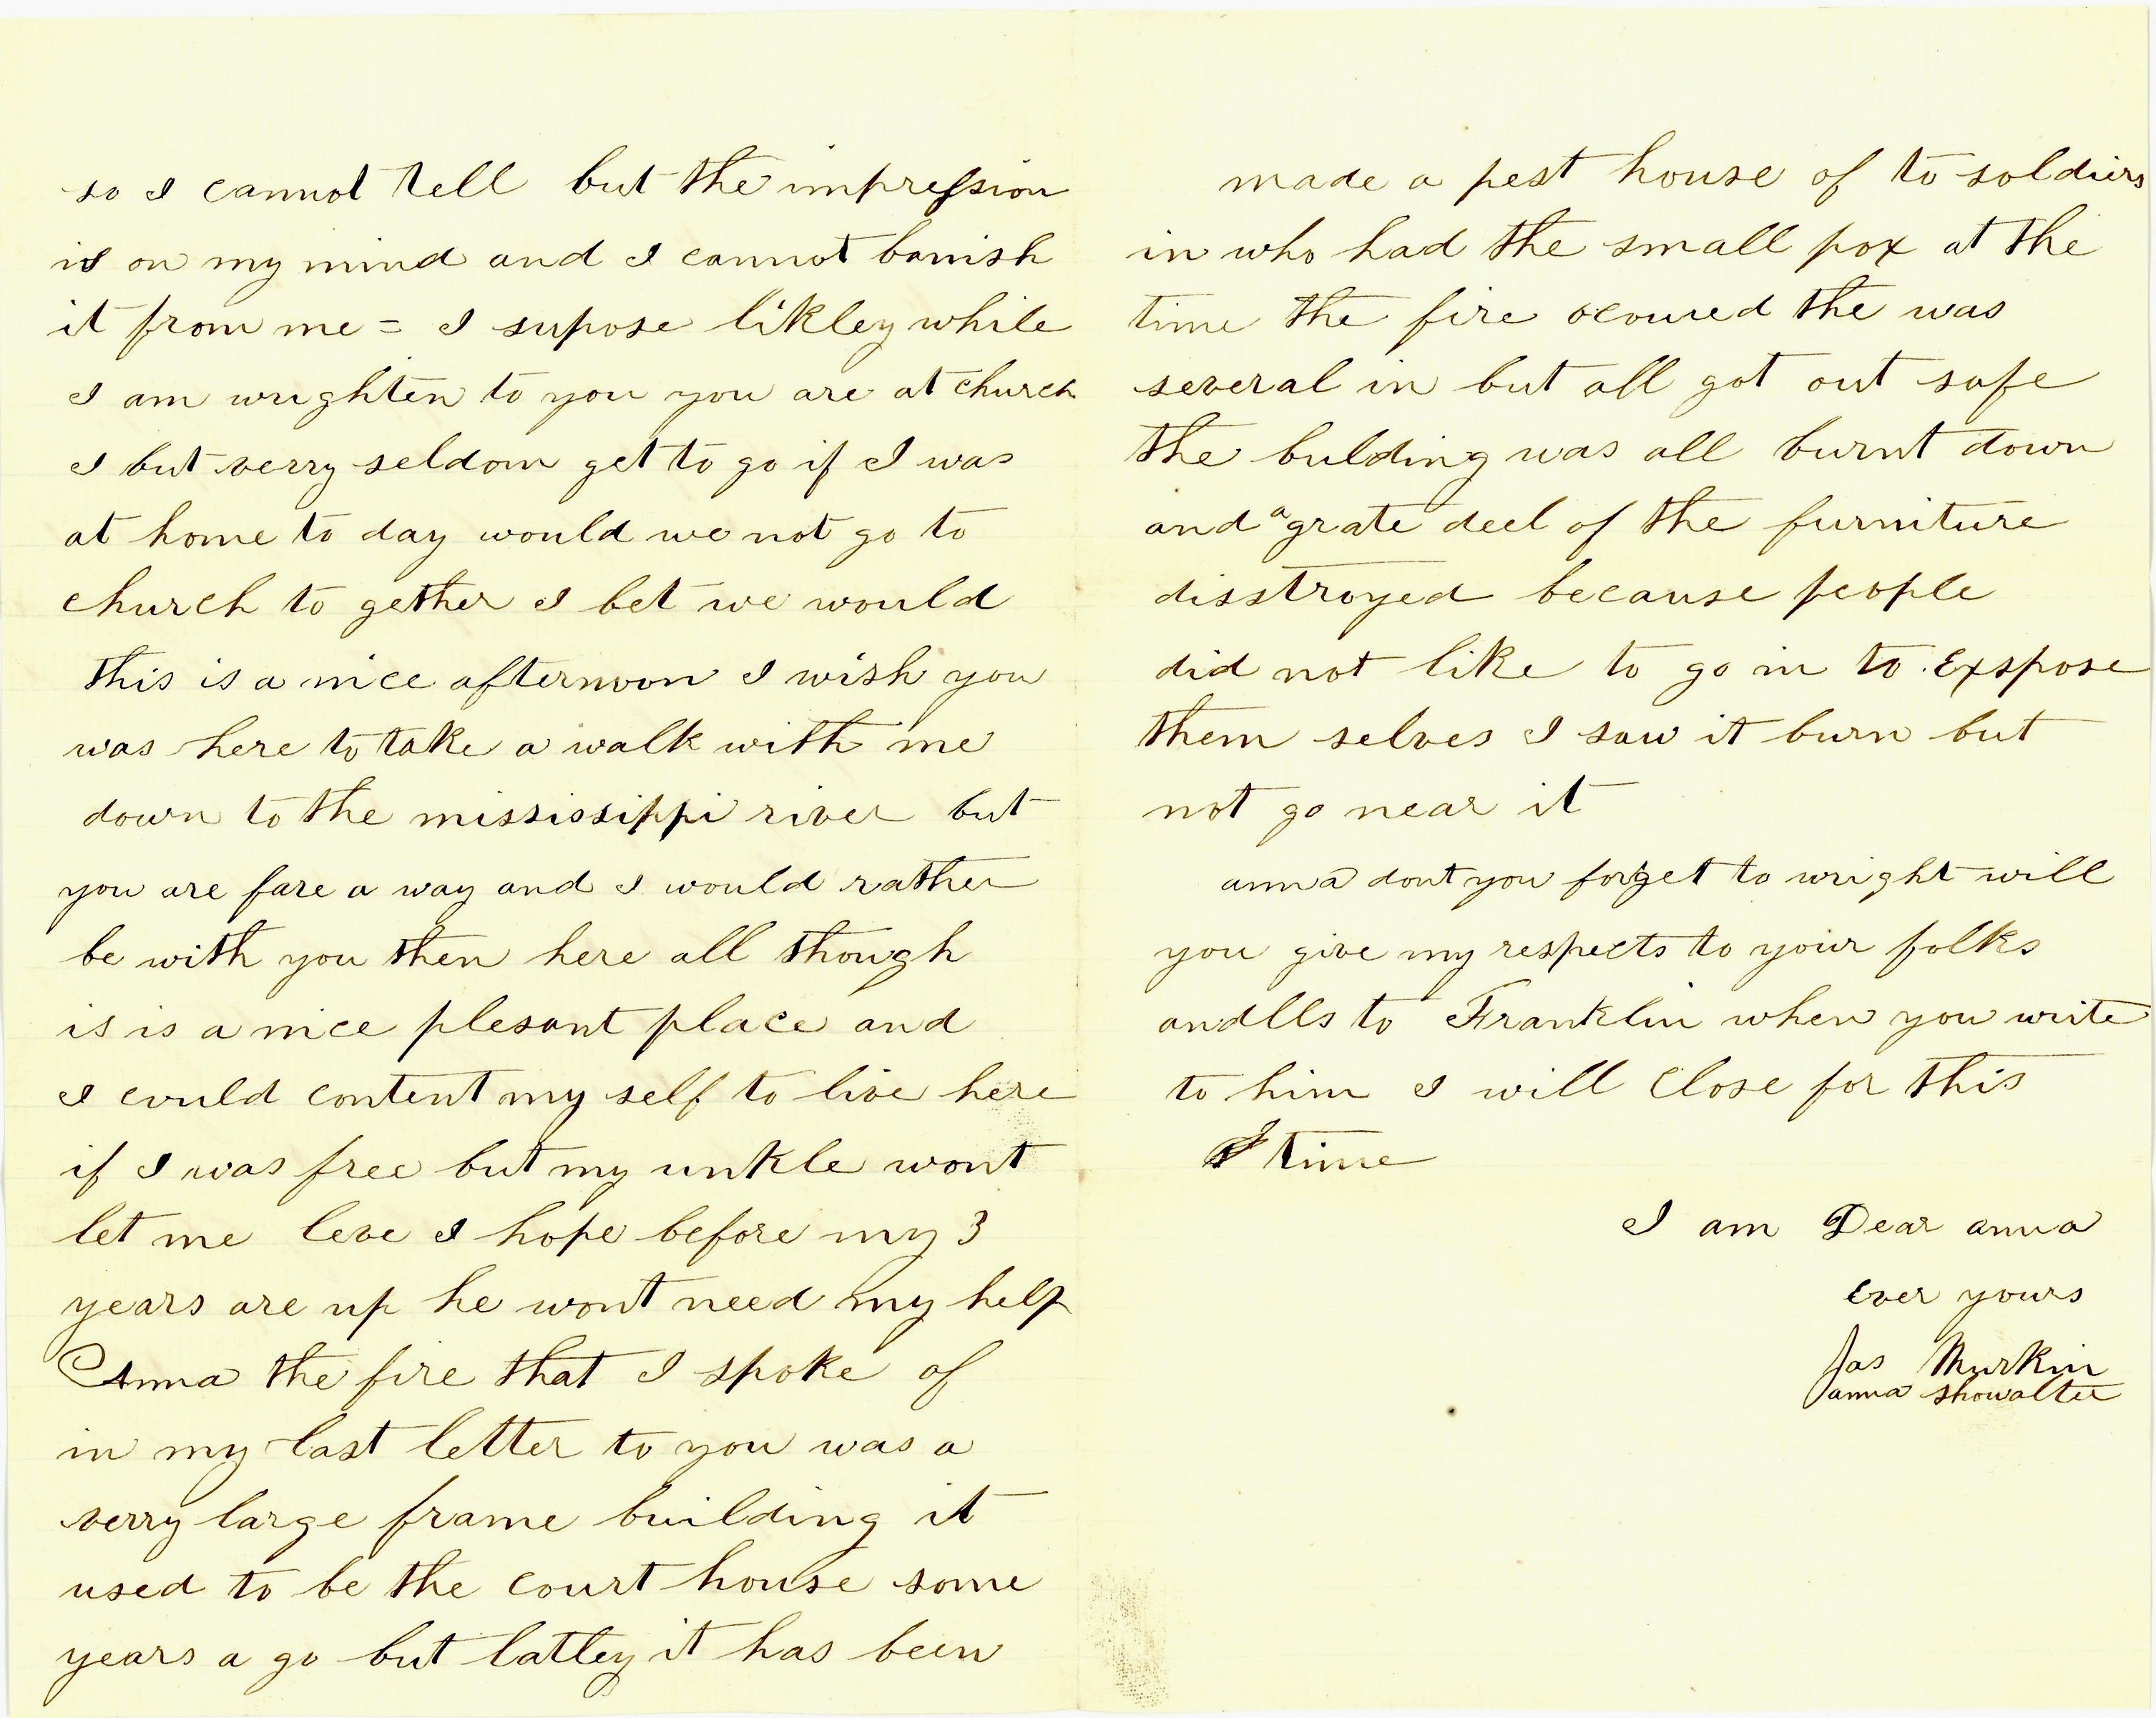 so I cannot tell but the impression
is on my mind and I cannot banish
it from me = I supose likley while
I am wrighten to you you are at church
I but verry seldom get to go if I was
at home to day would we not go to
church to gether I bet we would
this is a nice afternoon I wish you
was here to take a walk with me
down to the mississippi river but
you are fare a way and I would rather
be with you then here all though
is is a nice plesant place and
I could content my self to live here
if I was free but my unkle wont
let me leve I hope before my 3
years are up he wont need my help
Anna the fire that I spoke of
in my last letter to you was a
verry large frame building it
used to be the court house some
years a go but latley it has been
made a pest house of to soldiers
in who had the small pox at the
time the fire ocoured the was
several in but all got out safe
the bulding was all burnt down
and a grate deel of the furniture
disstroyed because people
did not like to go in to Exspose
them selves I saw it burn but
not go near it
anna dont you forget to wright will
you give my respects to your folks
and to Franklin when you write
to him I will Close for this
time
I am Dear anna
Ever yours
Jas Murkin
anna showalter